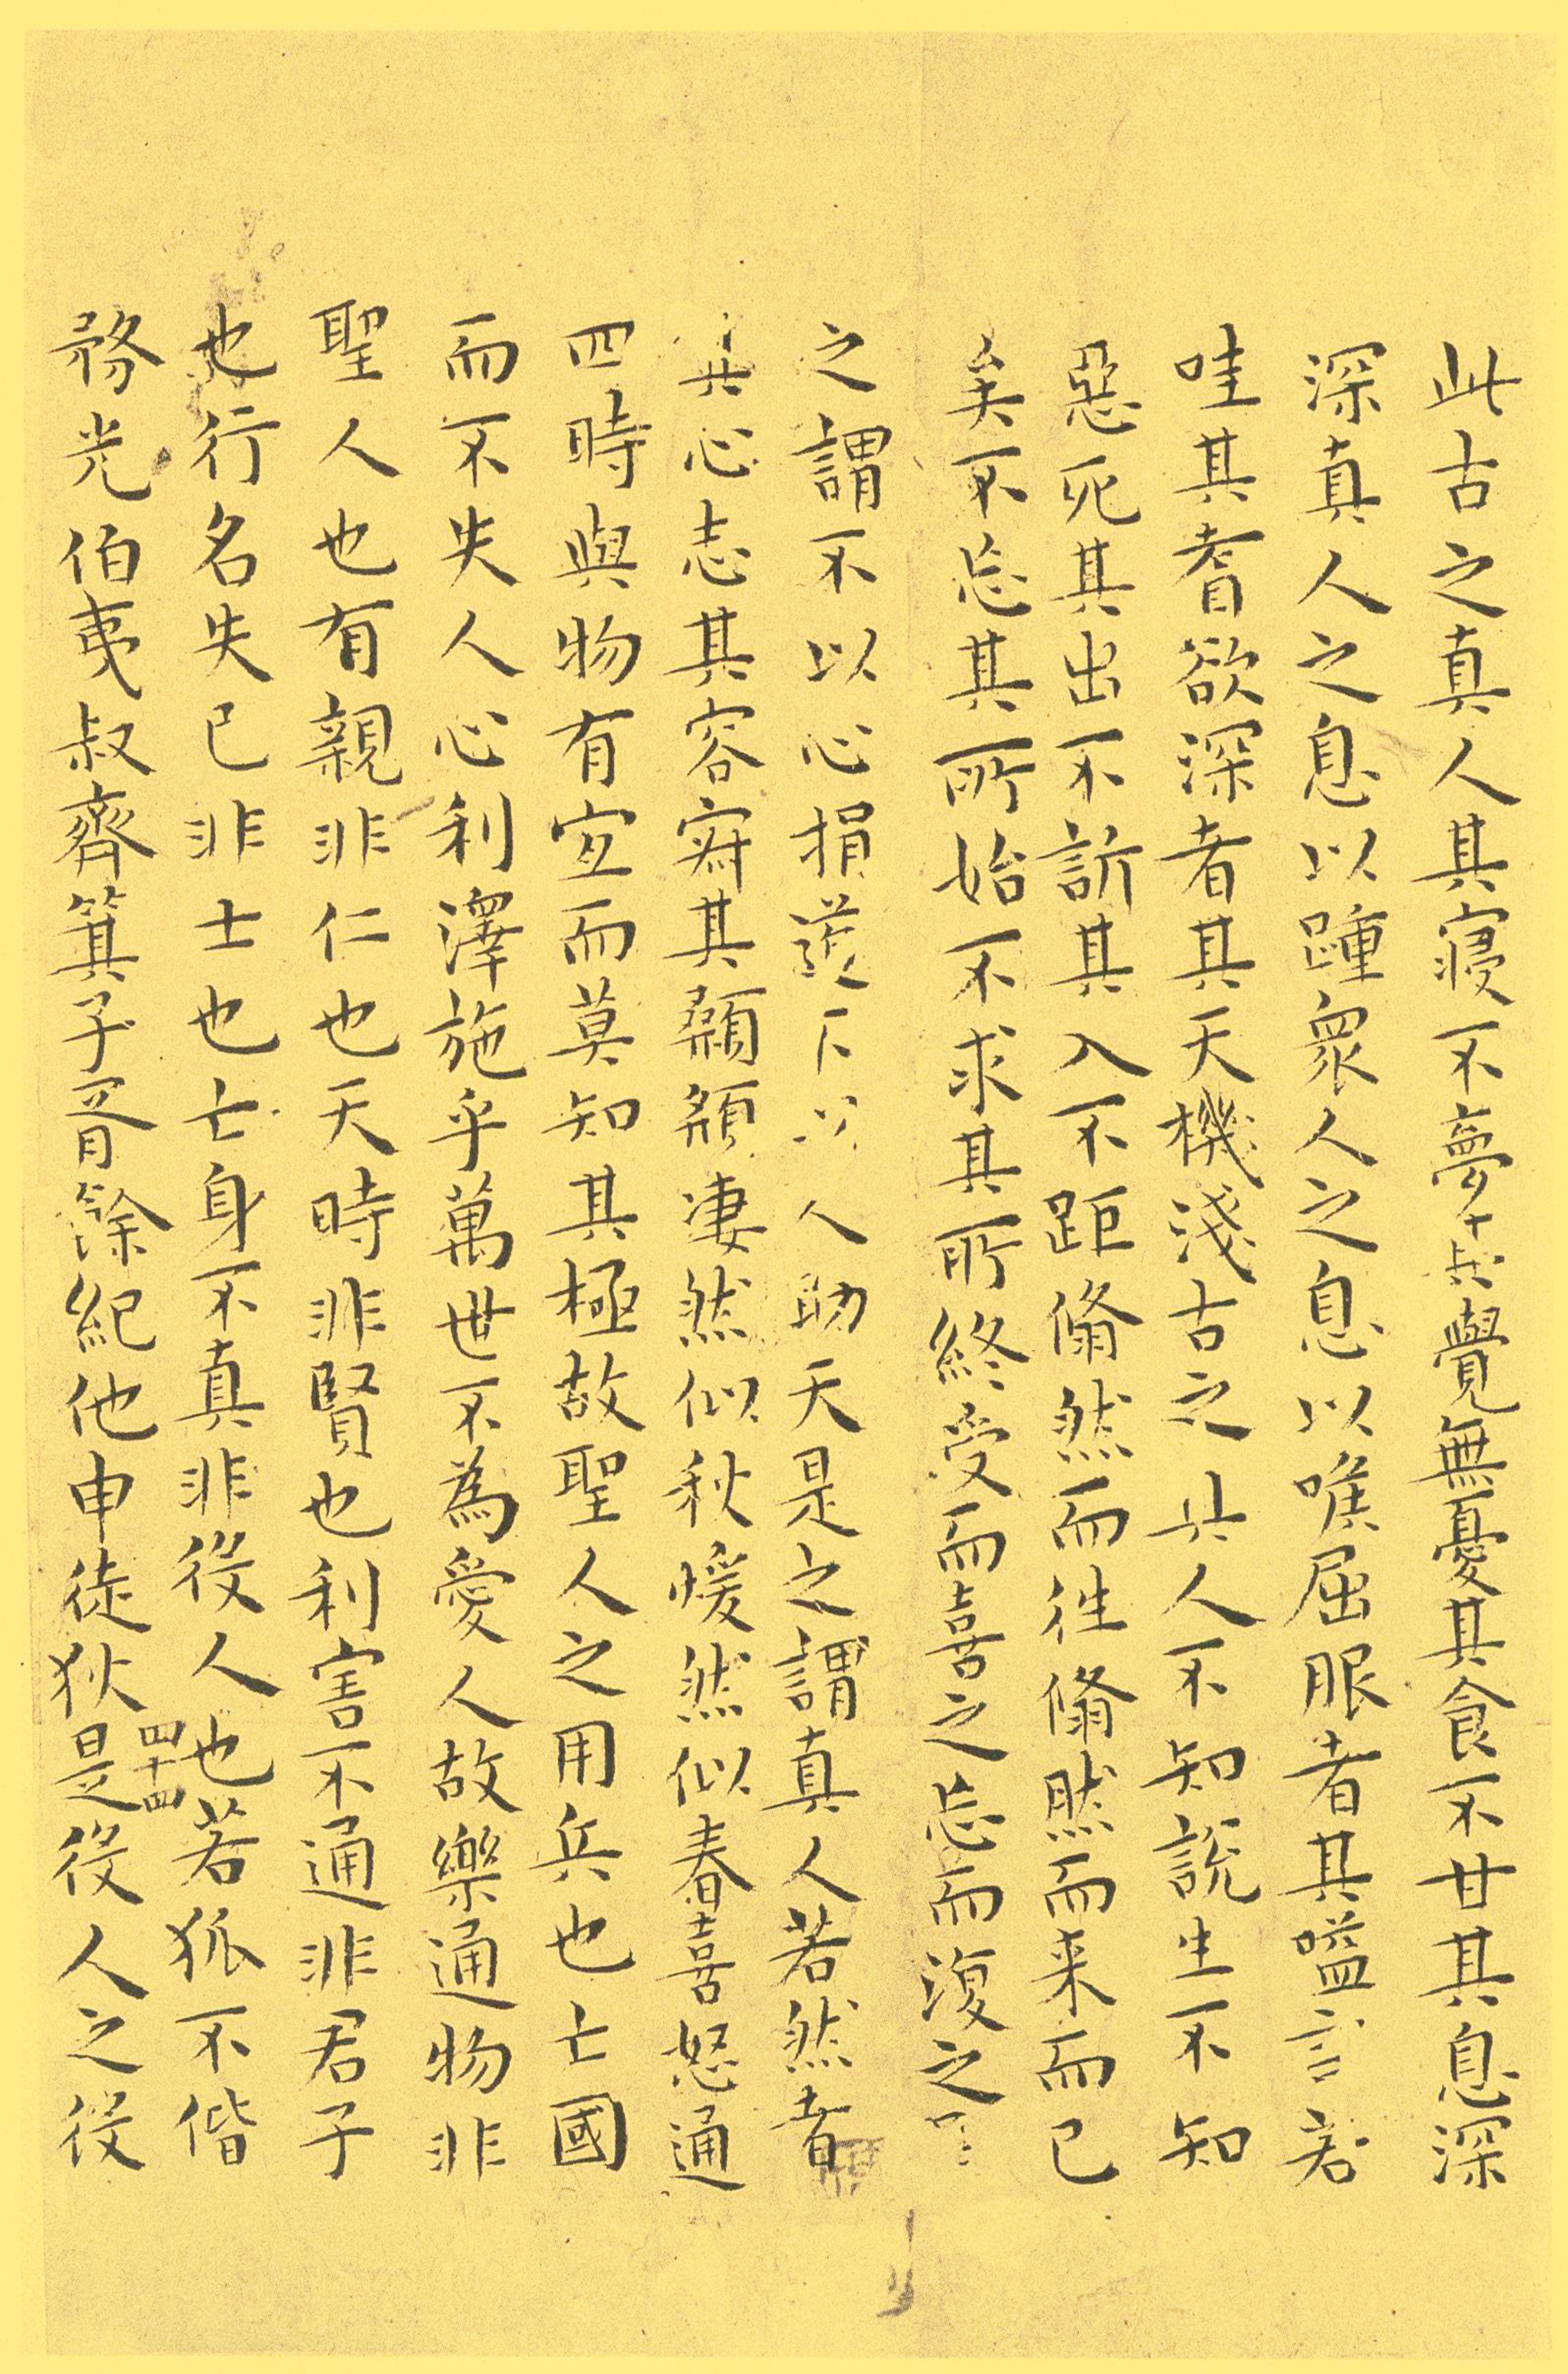 此古之真人其寑不夢其覺無憂其食不甘其息深
深真人之息以踵衆人之息以喉屈服者其嗌言若
哇其耆欲深者其天機淺古之真人不知說生不知
惡死其出不訢其入不距翛然而往翛然而来而已
矣不忘其所始不求其所終受而喜之忘而復之
之謂不以心捐道不以人助天是之謂真人若然者
其心志其容寂其顙頯凄然似秋煖然似春喜怒通
四時與物有宜而莫知其極故聖人之用兵也亡國
而不失人心利澤施乎萬世不為愛人故樂通物非
聖人也有親非仁也天時非賢也利害不通非君子
也行名失已非士也亡身不真非役人也若狐不偕
四十四
務光伯夷叔齊箕子胥餘紀他申徒狄是役人之役